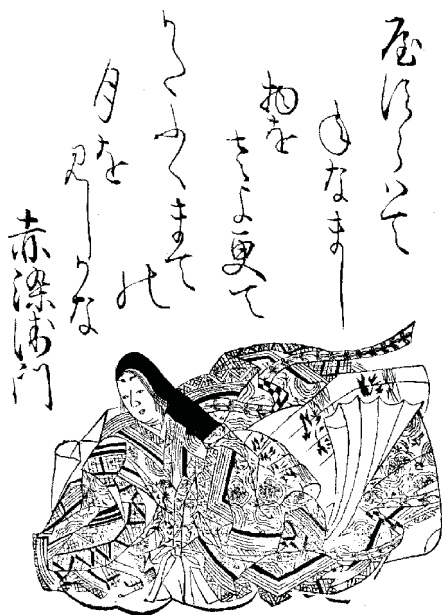 屋すらハて
ねなまし
物を
さよ更て
かたふくまて
の
月を
見しかな
赤染衛門